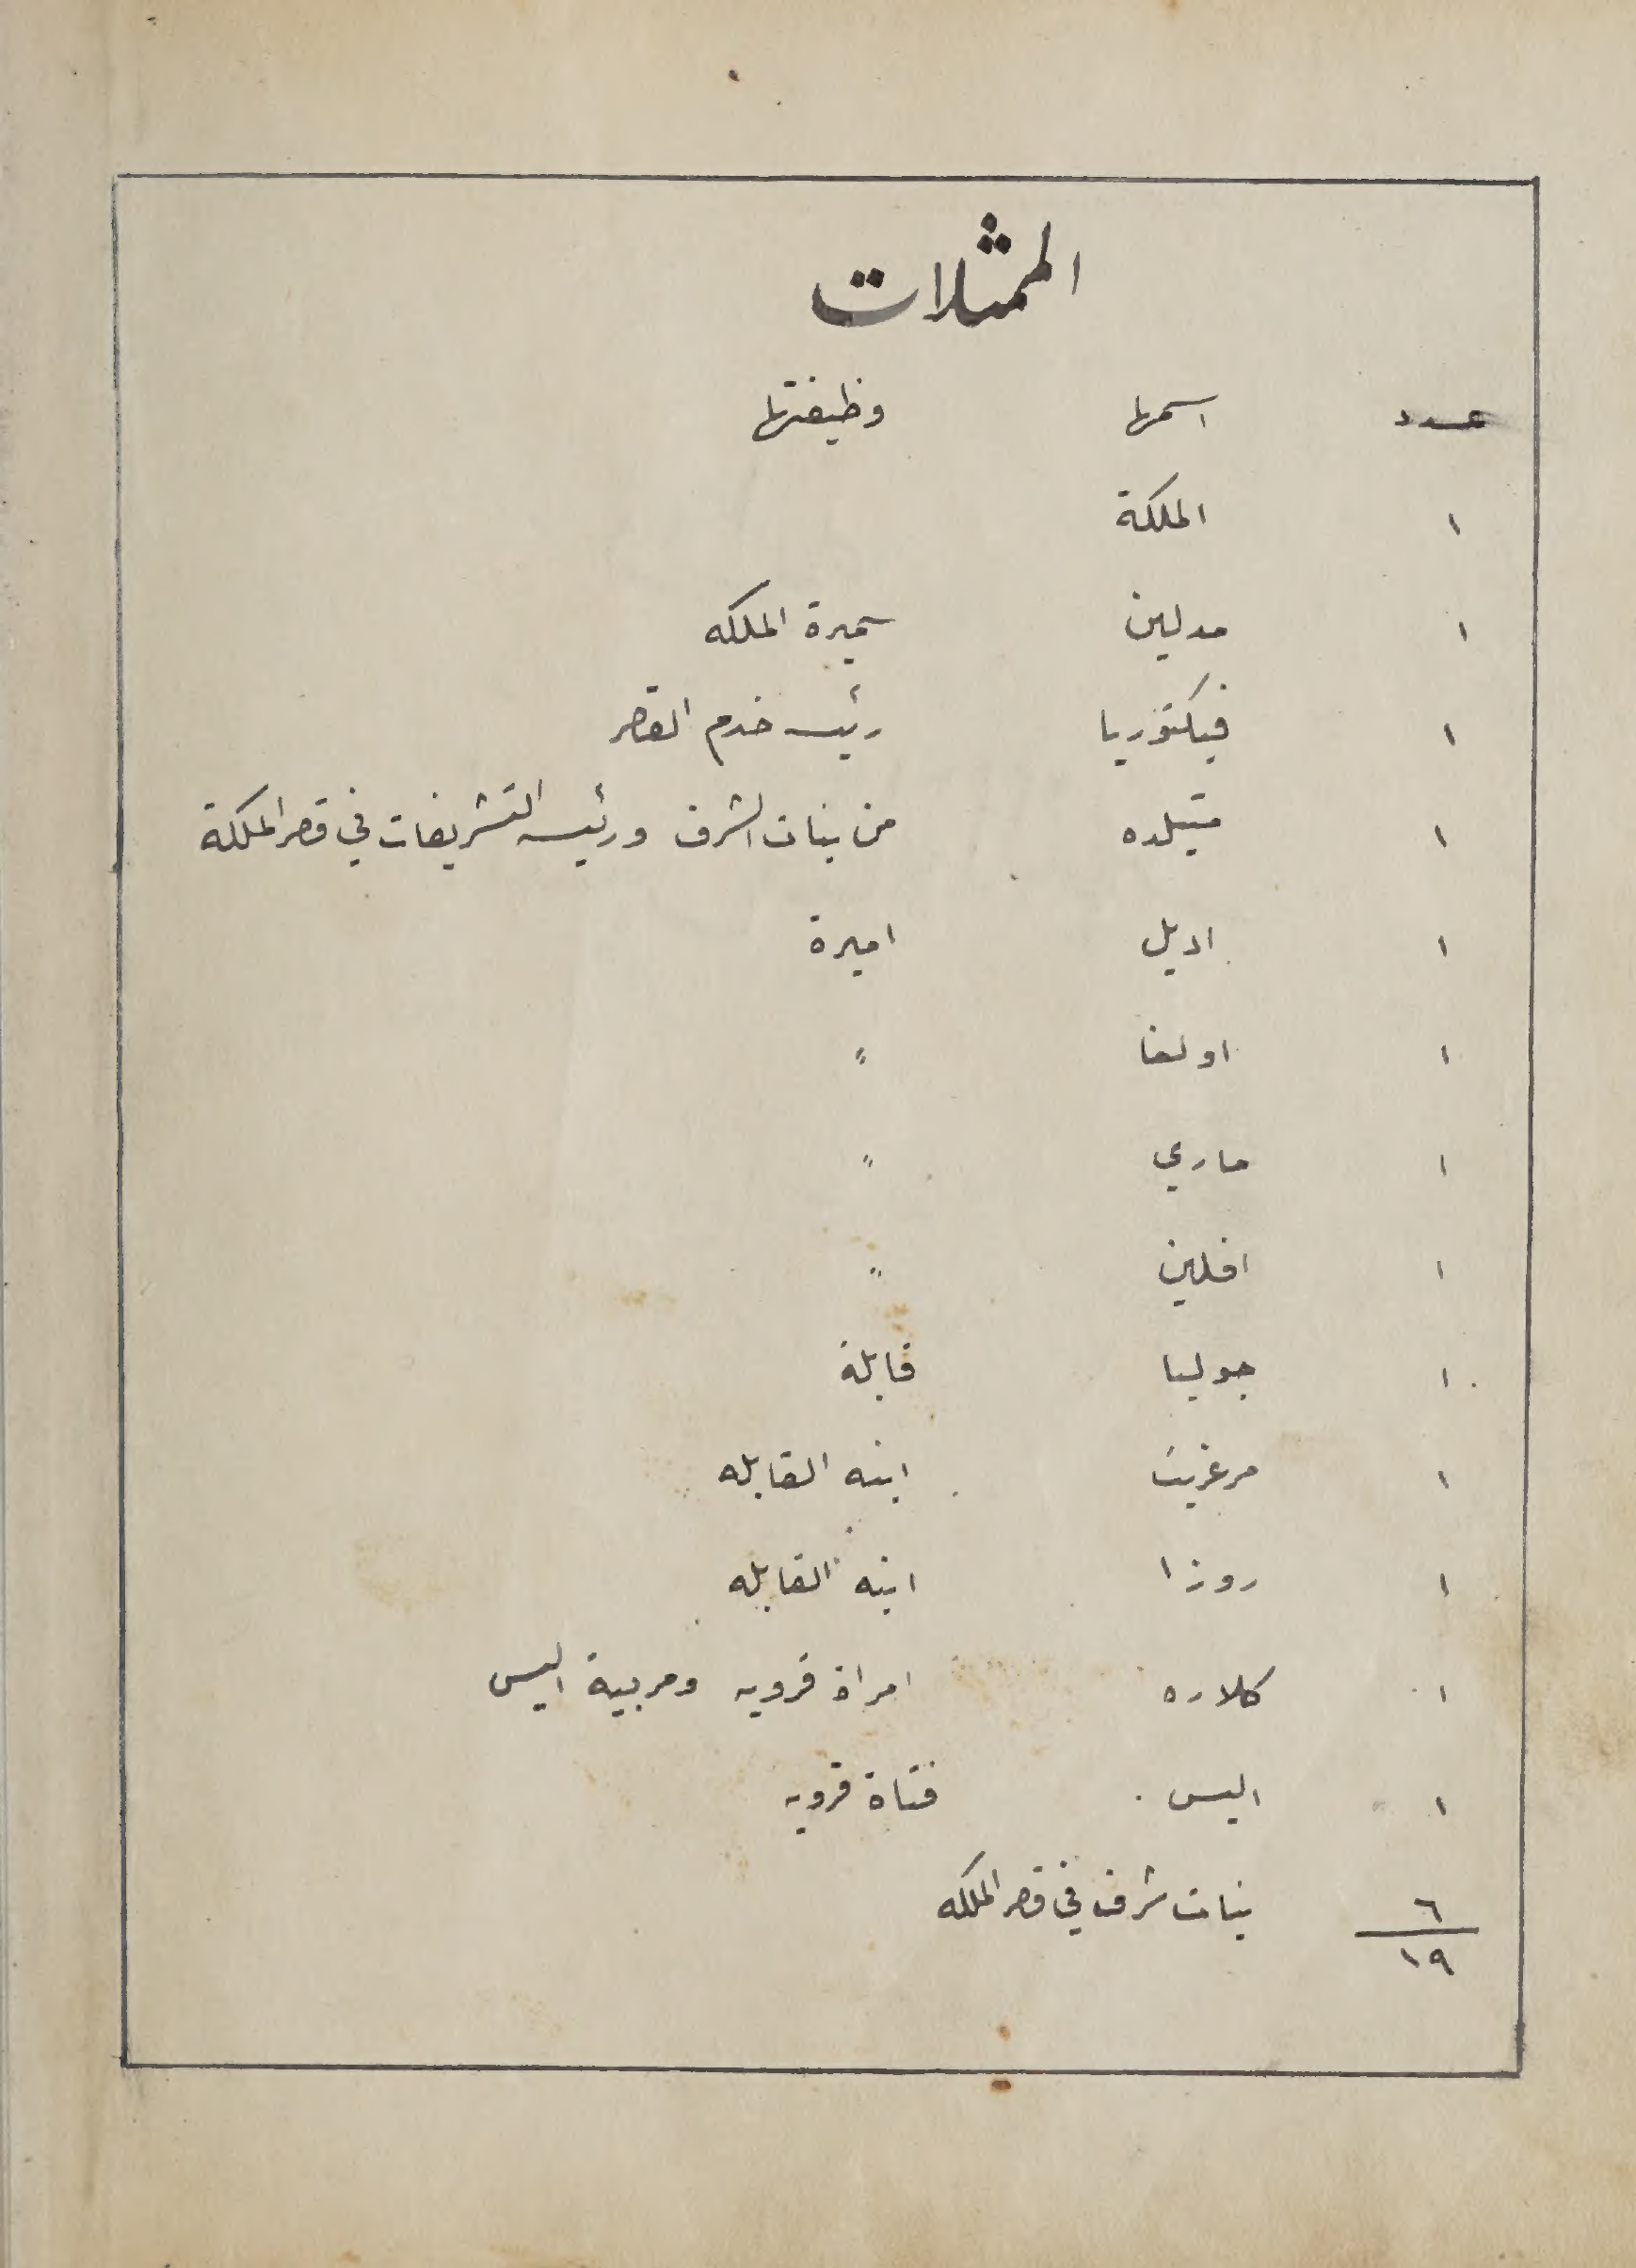 الممثلات
عدد اسمها وظيفتها
١ الملكة
١ مدلين سميرة الملكه
١ فيكتوريا رئيسه خدم القصر
١ متيلده من بنات الشرف ورئيسه التشريفات في قصر الملكة
١ اديل اميرة
١ اولغا "
١ ماري "
١ افلين "
١ جوليا قابلة
١ مرغريت ابنه القابله
١ روزا ابنه القابله
١ كلاره امراة قرويه ومربية اليس
١ اليس فتاة قرويه
٦ بنات شرف في قصر الملكه
١٩